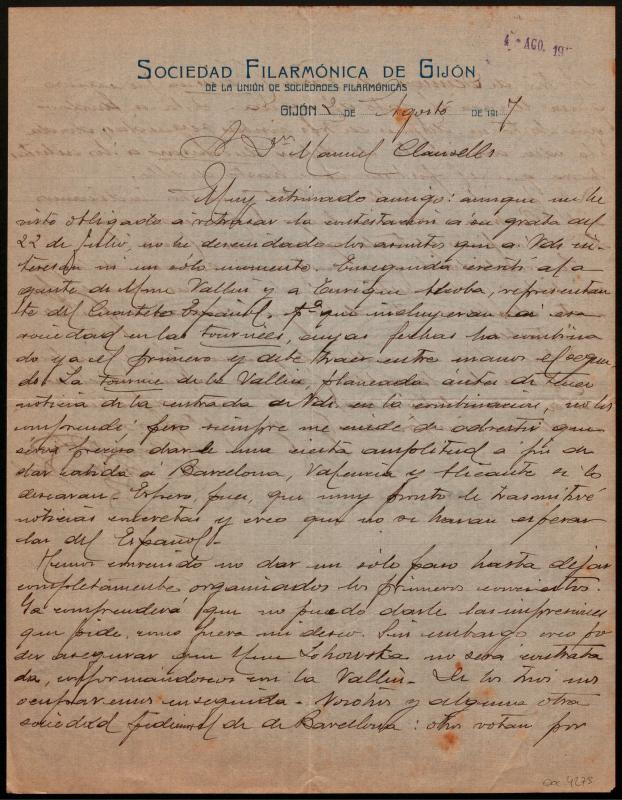 4 - AGO. 19
SOCIEDAD FILARMÓNICA DE GIJÓN
DE LA UNIÓN DE SOCIEDADES FILARMÓNICAS
GIJÓN 2 DE Agosto DE 1917
Sr Dn Manuel Clausells
Muy estimado amigo: aunque me he
visto obligado á retrasar la contestación á su grata del
22 de Julio, no he descuidado los asuntos que a Vds in-
teresan ni un sólo momento. Enseguida escribí al a
gente de Mme Vallin y a Enrique Alcoba, representan
te del Cuarteto Español, pª que incluyeran á esa
sociedad en las tournées, cuyas fechas ha combina
do ya el primero y debe traer entre manos el segun
do. La tournée de la Vallin, planeada antes de tener
noticia de la entrada de Vds. en la combinación, no les
comprende pero siempre me cuidé de advertir que
sería preciso darle una cierta amplitud a fin de
dar cabida á Barcelona, Valencia y Alicante si lo
desearan. Espero, pues, que muy pronto le trasmitiré
noticias concretas y creo que no se harán esperar
las del Español.
Hemos convenido no dar un sólo paso hasta dejar
completamente organizados los primeros conciertos.
Ya comprenderá que no puedo darle las impresiones
que pide, como fuera mi deseo. Sin embargo creo po
der asegurar que Mme no será contrata
da, conformándose con la Vallin. De los tríos nos
ocuparemos enseguida. Nosotros y alguna otra
sociedad el de Barcelona: otros votan por
4273